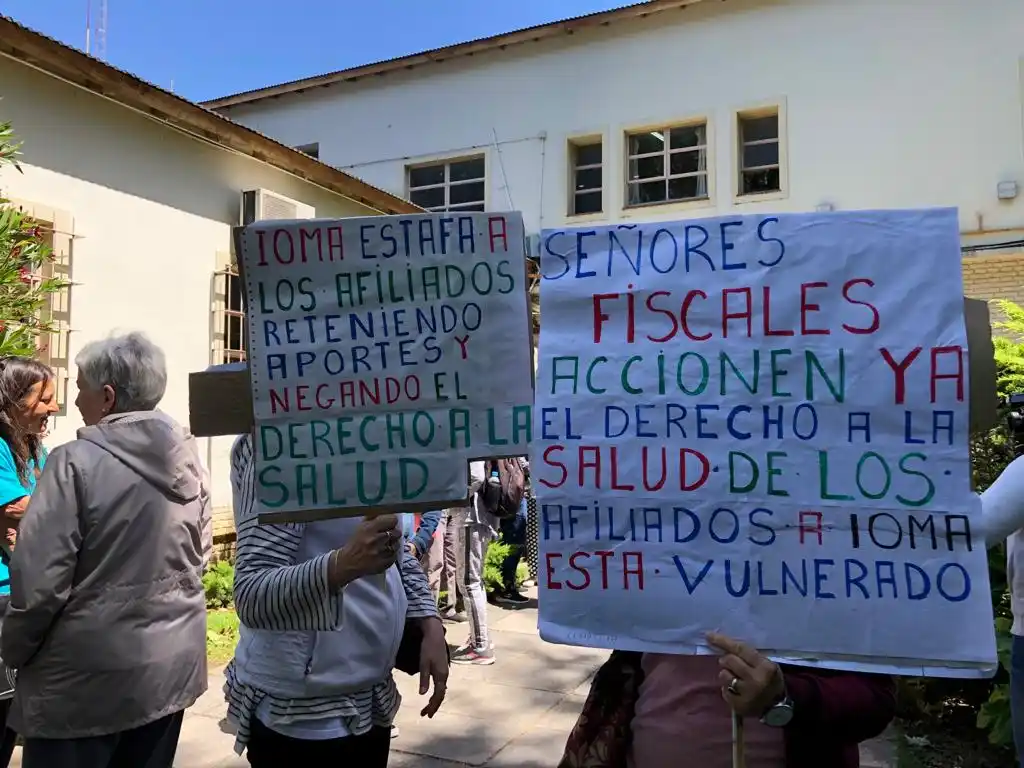 IOMA ESTAFA A
LOS AFILIADOS
RETENIENDO
APORTES Y
NEGANDO EL
DERECHO A LA
SALUD
SEÑORES
FISCALES
ACCIONEN YA
EL DERECHO A LA
SALUD·DE LOS·
AFILIADOS A IOMA
ESTA· VULNERADO